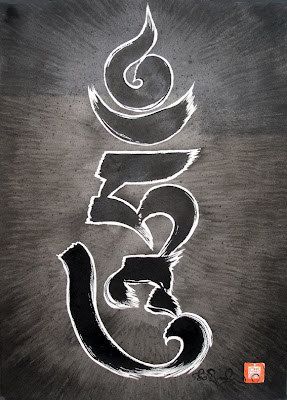 ཧཱུྃ